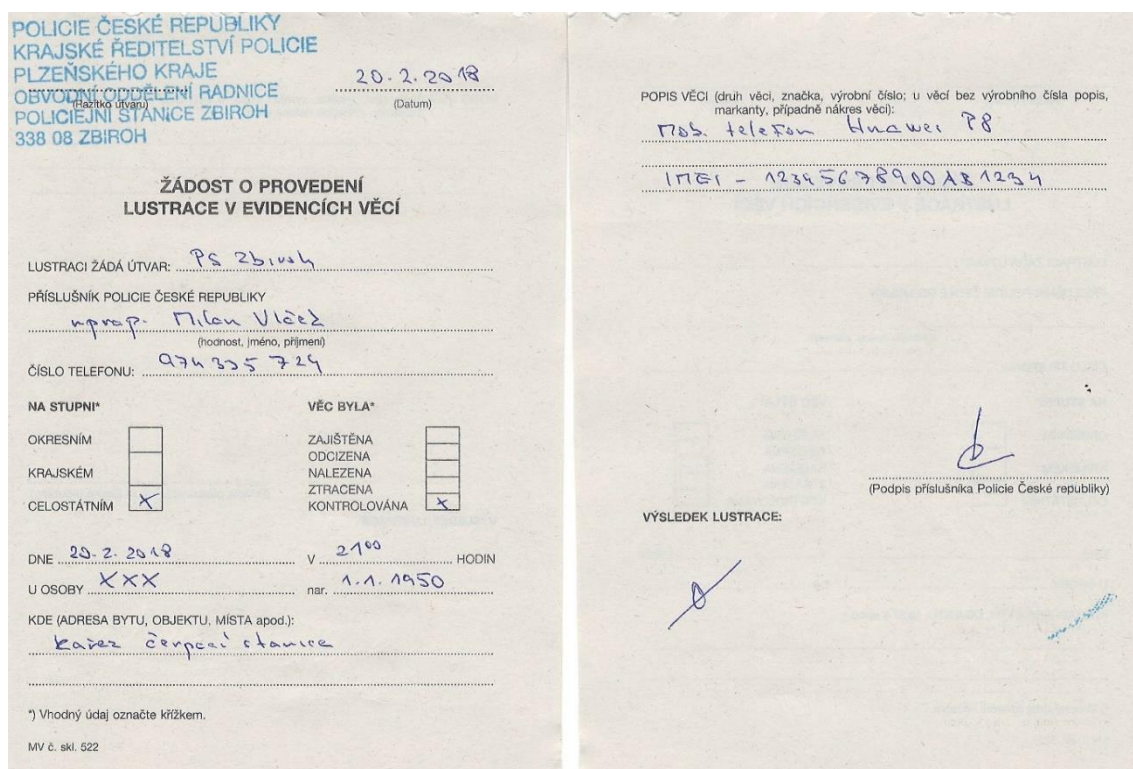 POLICIE ČESKÉ REPUBLIKY
KRAJSKÉ ŘEDITELSTVÍ POLICIE
PLZEŇSKÉHO KRAJE
OBVODNÍ ODDĚLENÍ RADNICE
POLICEJNÍ STANICE ZBIROH
338 08 ZBIROH
(Razítko útvaru)
20.2.2018
(Datum)
ŽÁDOST O PROVEDENÍ
LUSTRACE V EVIDENCÍCH VĚCÍ
LUSTRACI ŽÁDÁ ÚTVAR: PS Zbiroh
PŘÍSLUŠNÍK POLICIE ČESKÉ REPUBLIKY
nprap. Milan Vlček
(hodnost, jméno, příjmení)
ČÍSLO TELEFONU: 974 335 724
NA STUPNI* VĚC BYLA*
OKRESNÍM ZAJIŠTĚNA
ODCIZENA
KRAJSKÉM NALEZENA
ZTRACENA
CELOSTÁTNÍM X KONTROLOVÁNA X
DNE 20.2.2018 V 2100 HODIN
U OSOBY XXX nar. 1.1.1950
KDE (ADRESA BYTU, OBJEKTU, MÍSTA apod.):
Kařez čerpací stanice
*) Vhodný údaj označte křížkem.
MV č. skl. 522
POPIS VĚCI (druh věci, značka, výrobní číslo; u věcí bez výrobního čísla popis,
markanty, případně nákres věci):
Mob. telefon Huawei P8
IMEI - 12345678900AB1234
(Podpis příslušníka Policie České republiky)
VÝSLEDEK LUSTRACE: